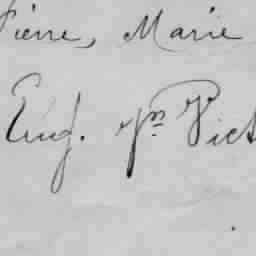 Pierre, Marie
Eug. Jn Vict